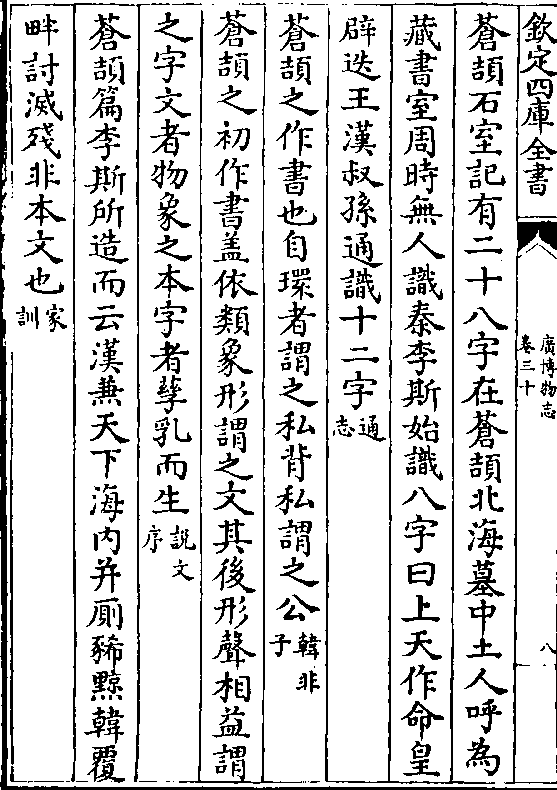 欽定四庫全書
廣博物志
卷三十
八
蒼頡石室記有二十八字在蒼頡北海墓中土人呼為
藏書室周時無人識秦李斯始識八字曰上天作命皇
辟迭王漢叔孫通識十二字通志
蒼頡之作書也自環者謂之私背私謂之公韓非子
蒼頡之初作書盖依類象形謂之文其後形聲相益謂
之字文者物象之本字者孳乳而生説文序
蒼頡篇李斯所造而云漢兼天下海内并厠豨黥韓覆
畔討滅殘非本文也家訓